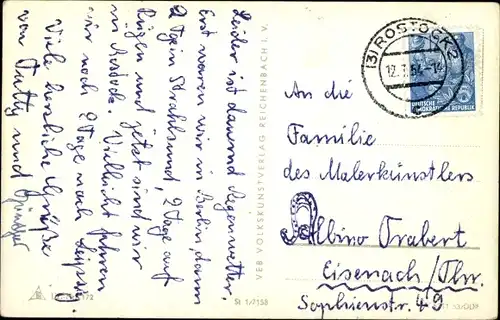 Leider ist dauernd Regenwetter.
Erst waren wir in Berlin, dann
2 Tg in Strahlsund, 2 Tage auf
Rügen und jetzt sind wir
in Rostock. Vielleicht fahren
wir noch 2 Tage nach Leipzig.
Viele herzliche Grüße
von Tutty und Günther
VEB VOLKSKUNSTVERLAG REICHENBACH I. V.
(3) ROSTOCK 2
12.7.64-14
DEUTSCHE
DEMOKRATISCHE REPUBLIK
An die
Familie
des Malerkünstlers
Albino Trabert
Eisenach/Thr.
Sophienstr. 49